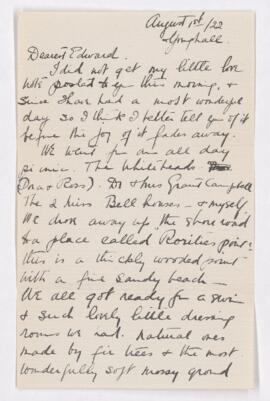 August 1st/22
Dearest Edward.
I did not get my little love
note posted to you this morning, &
since I have had a most wonderful
day so I think I better tell you of it
before the joy of it fades away.
We went for an all day
picnic. The Whiteheads
(Dora & Ross). Dr & Mrs Grant Campbell
The 2 Miss Bell Irvings - & myself
We drove away up the shore road
to a place called point:
this is a thickly wooded point
with a fine sandy beach -
We all got ready for a swim
& such lovely little dressing
rooms we had. Natural ones
made by fir trees & the most
wonderfully soft mossy ground